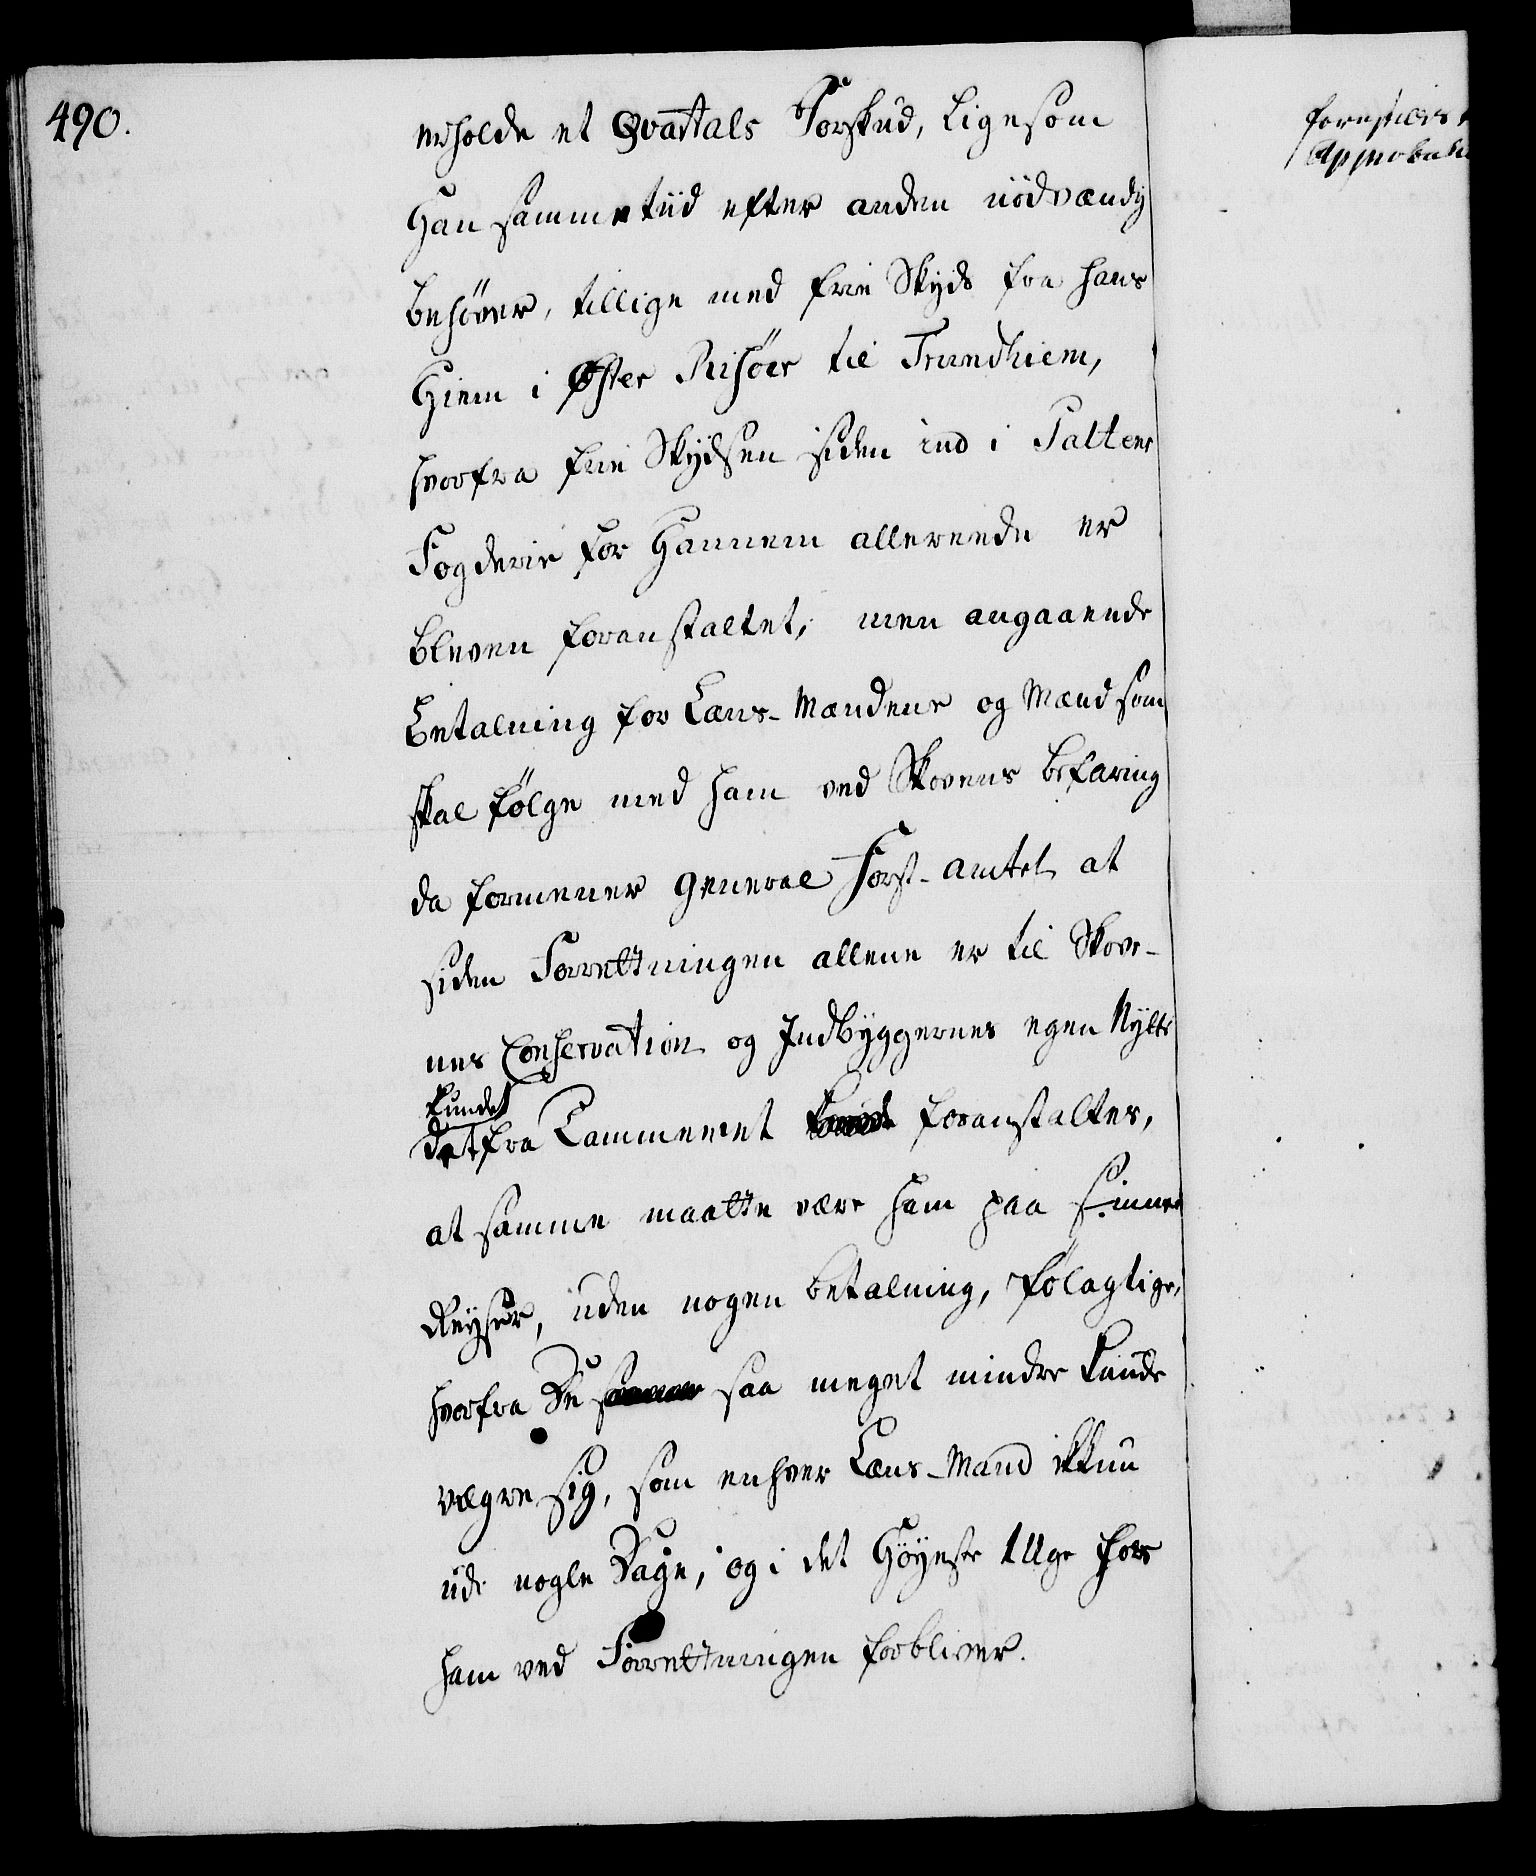 490.
erholde et Qvartals Forskud, ligesom
Han sammetiid efter anden nödvændig
behöver, tillige med frie Skyds fra hans
Hiem i Øster Riisöer til Trundhiem,
hvorfra frie Skydsen siden ind i Saltens
Fogderie for Hannem allereede er
bleven foranstaltet; men angaaende
Betalning for Læns-Mændene og Mænd som
skal fölge med ham ved Skovens befaring
da formener General Forst-Amtet at
siden Forrettningen allene er til Skove-
nes Conservation og Indbyggernes egen Nytte
kunde
det fra Cammeret foranstaltes,
at samme maatte være ham paa sinne
Reyser, uden nogen betalning, fölagtige,
hvorfra De saa meget mindre kunde
vægre sig, som enhver Læns-Mand ikkun
udi nogle Dage, og i det Höyeste Uge hos
ham ved Forrettningen forbliver.
forestilles